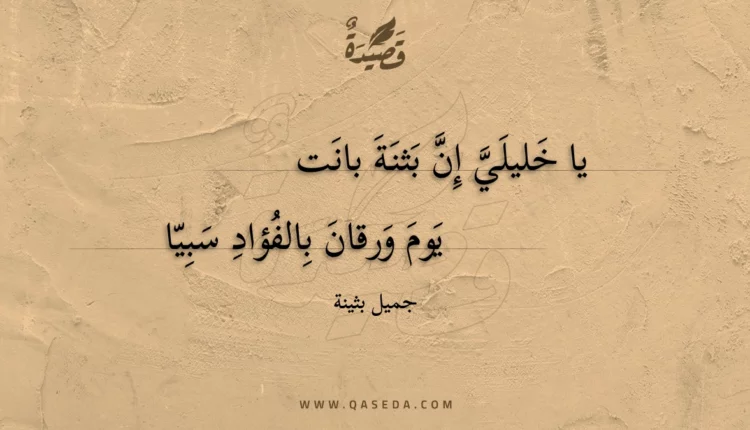 قَصِيْدَةٌ
يا خَليلَيَّ إِنَّ بَثنَةَ بانَت
يَومَ وَرقانَ بِالفُؤادِ سَبِيّا
جميل بثينة
WWW.QASEDA.COM